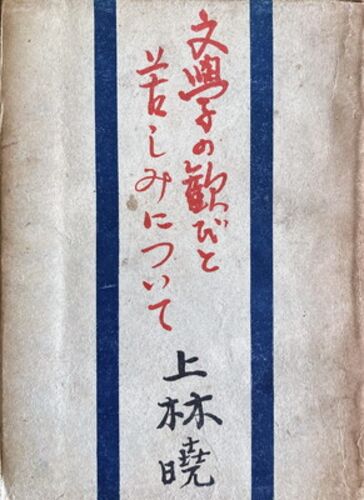 文學の歓びと
苦しみについて
上林暁